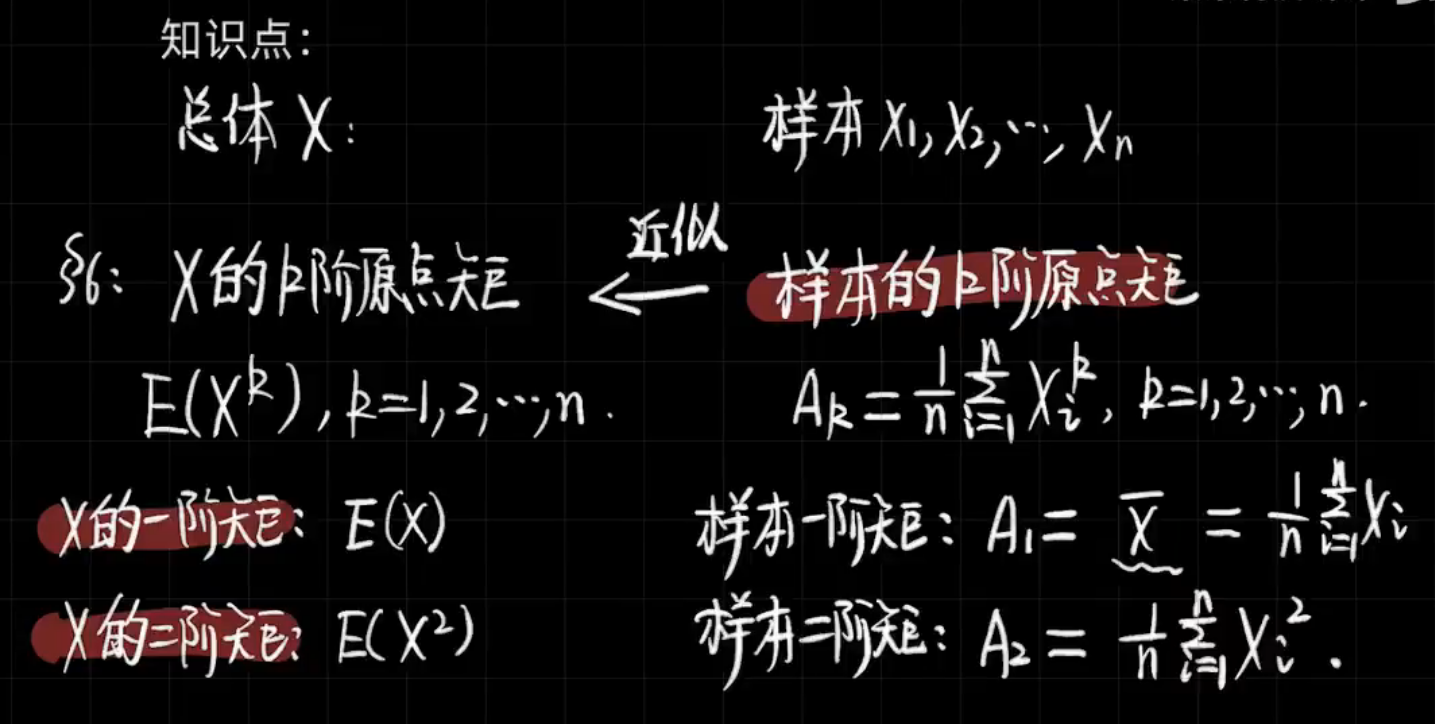 知识点:
总体 X: 样本 X₁, X₂, ⋯, Xₙ
§6: X的k阶原点矩 ←近似 样本的k阶原点矩
E(Xᵏ), k=1,2,⋯,n. Aₖ = 1/n ∑ᵢ₌₁ⁿ Xᵢᵏ, k=1,2,⋯,n.
X的一阶矩: E(X) 样本一阶矩: A₁ = X̄ = 1/n ∑ᵢ₌₁ⁿ Xᵢ
X的二阶矩: E(X²) 样本二阶矩: A₂ = 1/n ∑ᵢ₌₁ⁿ Xᵢ².